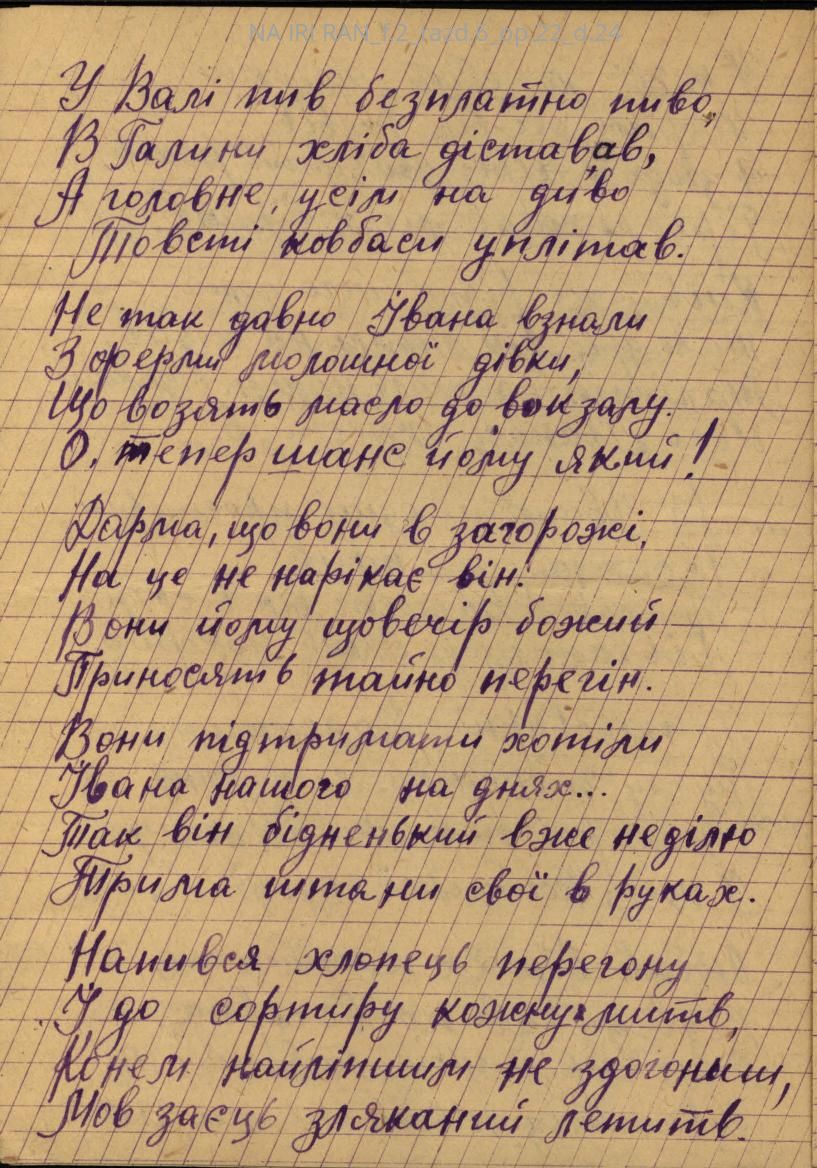 NA IRI RAN_f.2_razd.6_op.22_d.24
У Валі пив безплатно пиво,
В Галини хліба діставав,
А головне, усім на диво
Товсті ковбаси уплітав.
Не так давно Івана взнали
З ферми молошної дівки,
Що возять масло до вокзалу.
О, тепер шанс йому який!
Дарма, що вони в загорожі,
На це не нарікає він.
Вони йому щовечір божий
Приносять тайно перегін.
Вони підтримати хотіли
Івана нашого на днях...
Так він бідненький вже неділю
Трима штани свої в руках.
Напився хлопець перегону
І до сортиру кожну мить,
Конем найліпшим не здогониш,
Мов заєць зляканий летить.